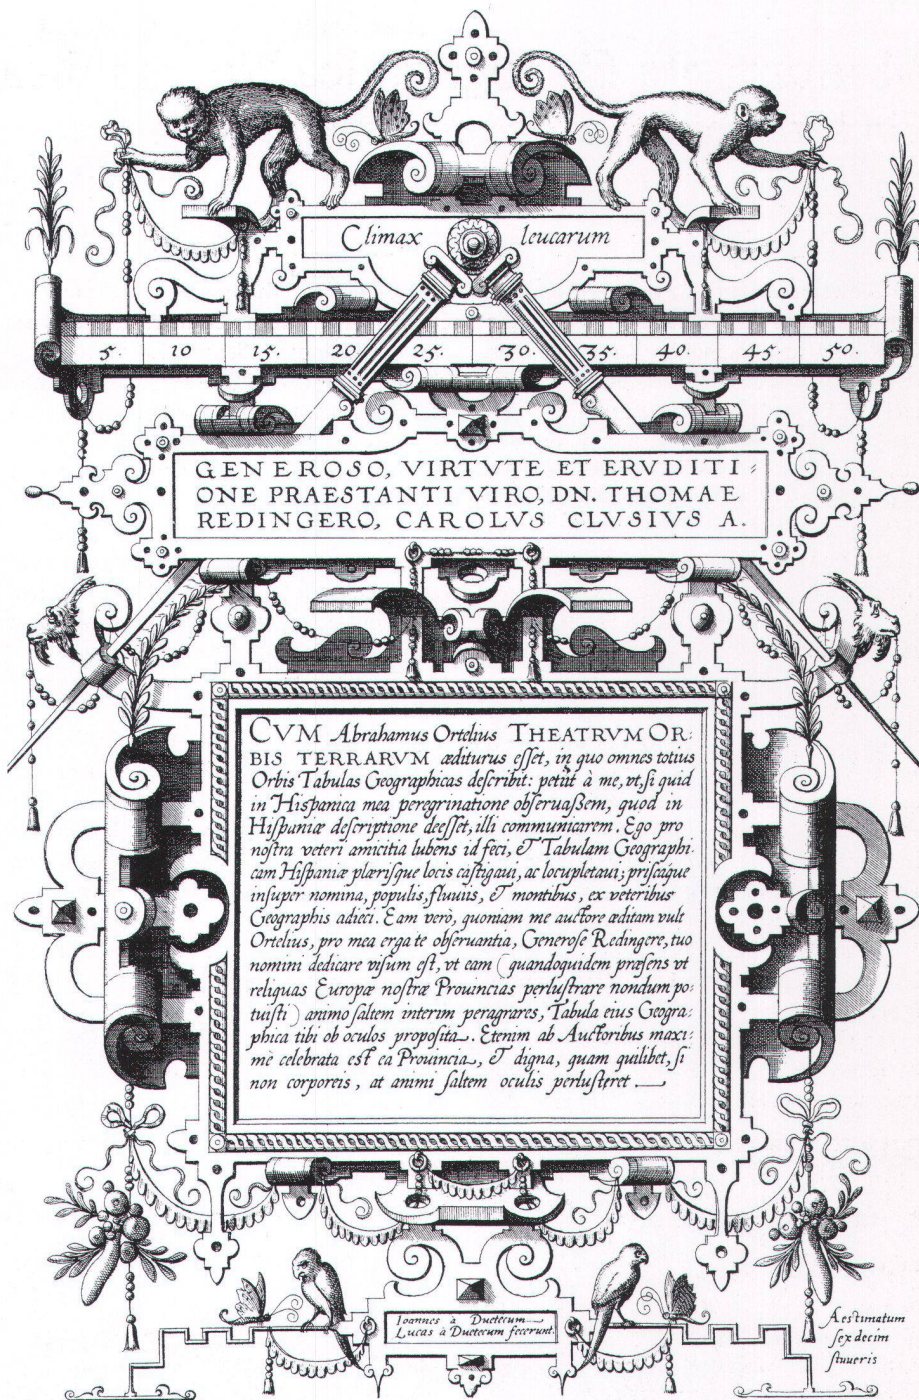 Climax leucarum
5. 10 15. 20 25. 30. 35. 40. 45. 50.
GENEROSO, VIRTVTE ET ERVDITI⸗
ONE PRAESTANTI VIRO, DN. THOMAE
REDINGERO, CAROLVS CLVSIVS A.
CVM Abrahamus Ortelius THEATRVM OR⸗
BIS TERRARVM æditurus eſſet, in quo omnes totius
Orbis Tabulas Geographicas deſcribit: petijt à me, vt, ſi quid
in Hiſpanica mea peregrinatione obſeruaßem, quod in
Hiſpaniæ deſcriptione deeſſet, illi communicarem. Ego pro
noſtra veteri amicitia lubens id feci, & Tabulam Geographi
cam Hiſpaniæ plæriſque locis caſtigaui, ac locupletaui; priſcaque
inſuper nomina, populis, fluuijs, & montibus, ex veteribus
Geographis adieci. Eam verò, quoniam me auctore æditam vult
Ortelius, pro mea erga te obſeruantia, Generoſe Redingere, tuo
nomini dedicare viſum eſt, vt eam (quandoquidem præſens vt
reliquas Europæ noſtræ Prouincias perluſtrare nondum po⸗
tuiſti) animo ſaltem interim peragrares, Tabula eius Geogra⸗
phica tibi ob oculos propoſita. Etenim ab Auctoribus maxi⸗
mè celebrata eſt ea Prouincia, & digna, quam quilibet, ſi
non corporeis, at animi ſaltem oculis perluſtret.
Ioannes à Duetecum
Lucas à Duetecum fecerunt.
Aestimatum
ſex decim
ſtuueris